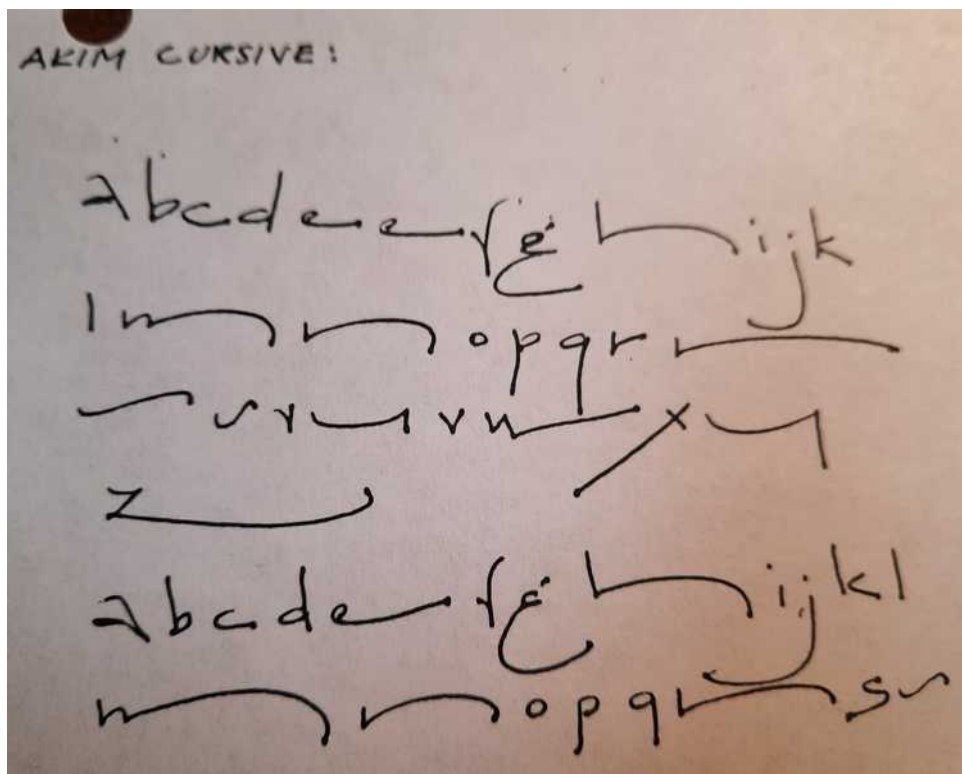 AKIM CURSIVE:
a b c d e e f g h i j k
l m n o p q r r
s s t u v w x y
z
a b c d e f g h i j k l
m n o p q r s